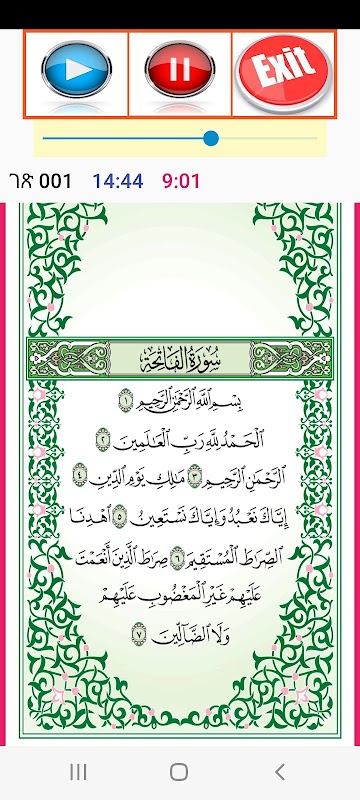 Exit
ገጽ 001 14:44 9:01
سُورَةُ الْفَاتِحَةِ
بِسْمِ ٱللَّهِ ٱلرَّحْمَٰنِ ٱلرَّحِيمِ ١
ٱلْحَمْدُ لِلَّهِ رَبِّ ٱلْعَٰلَمِينَ ٢
ٱلرَّحْمَٰنِ ٱلرَّحِيمِ ٣ مَٰلِكِ يَوْمِ ٱلدِّينِ ٤
إِيَّاكَ نَعْبُدُ وَإِيَّاكَ نَسْتَعِينُ ٥ ٱهْدِنَا
ٱلصِّرَٰطَ ٱلْمُسْتَقِيمَ ٦ صِرَٰطَ ٱلَّذِينَ أَنْعَمْتَ
عَلَيْهِمْ غَيْرِ ٱلْمَغْضُوبِ عَلَيْهِمْ
وَلَا ٱلضَّآلِّينَ ٧